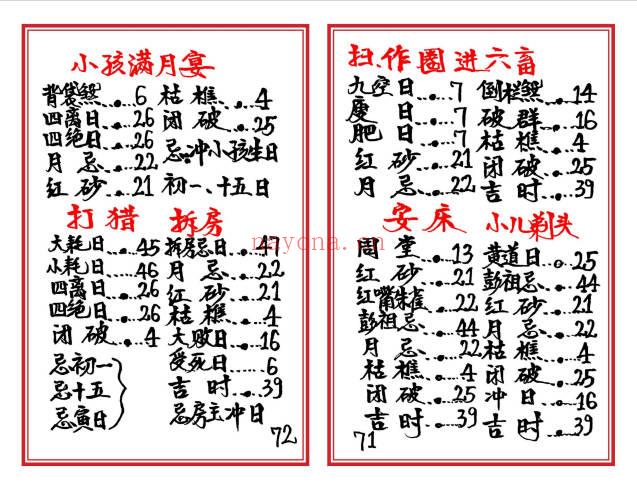 小孩满月宴
背袋煞...6
四离日...26
四绝日...26
月忌...22
红砂...21
枯樵...4
闭破...25
忌冲小孩生日
初一、十五日
打猎
大耗日...45
小耗日...46
四离日...26
四绝日...26
闭破...4
忌初一
忌十五
忌寅日
拆房
拆房忌日...47
月忌...22
红砂...21
枯樵...4
大败日...16
受死日...6
吉时...39
忌房主冲日
72
扫、作圈进六畜
九空日...7
废日...7
肥日...7
红砂...21
月忌...22
倒栏煞...14
破群...16
枯樵...4
闭破...25
吉时...39
安床
周堂...13
红砂...21
红嘴朱雀...22
彭祖忌...44
月忌...22
枯樵...4
闭破...25
吉时...39
71
小儿剃头
黄道日...25
彭祖忌...44
红砂...21
月忌...22
枯樵...4
闭破...25
冲日...16
吉时...39
nayona.cn